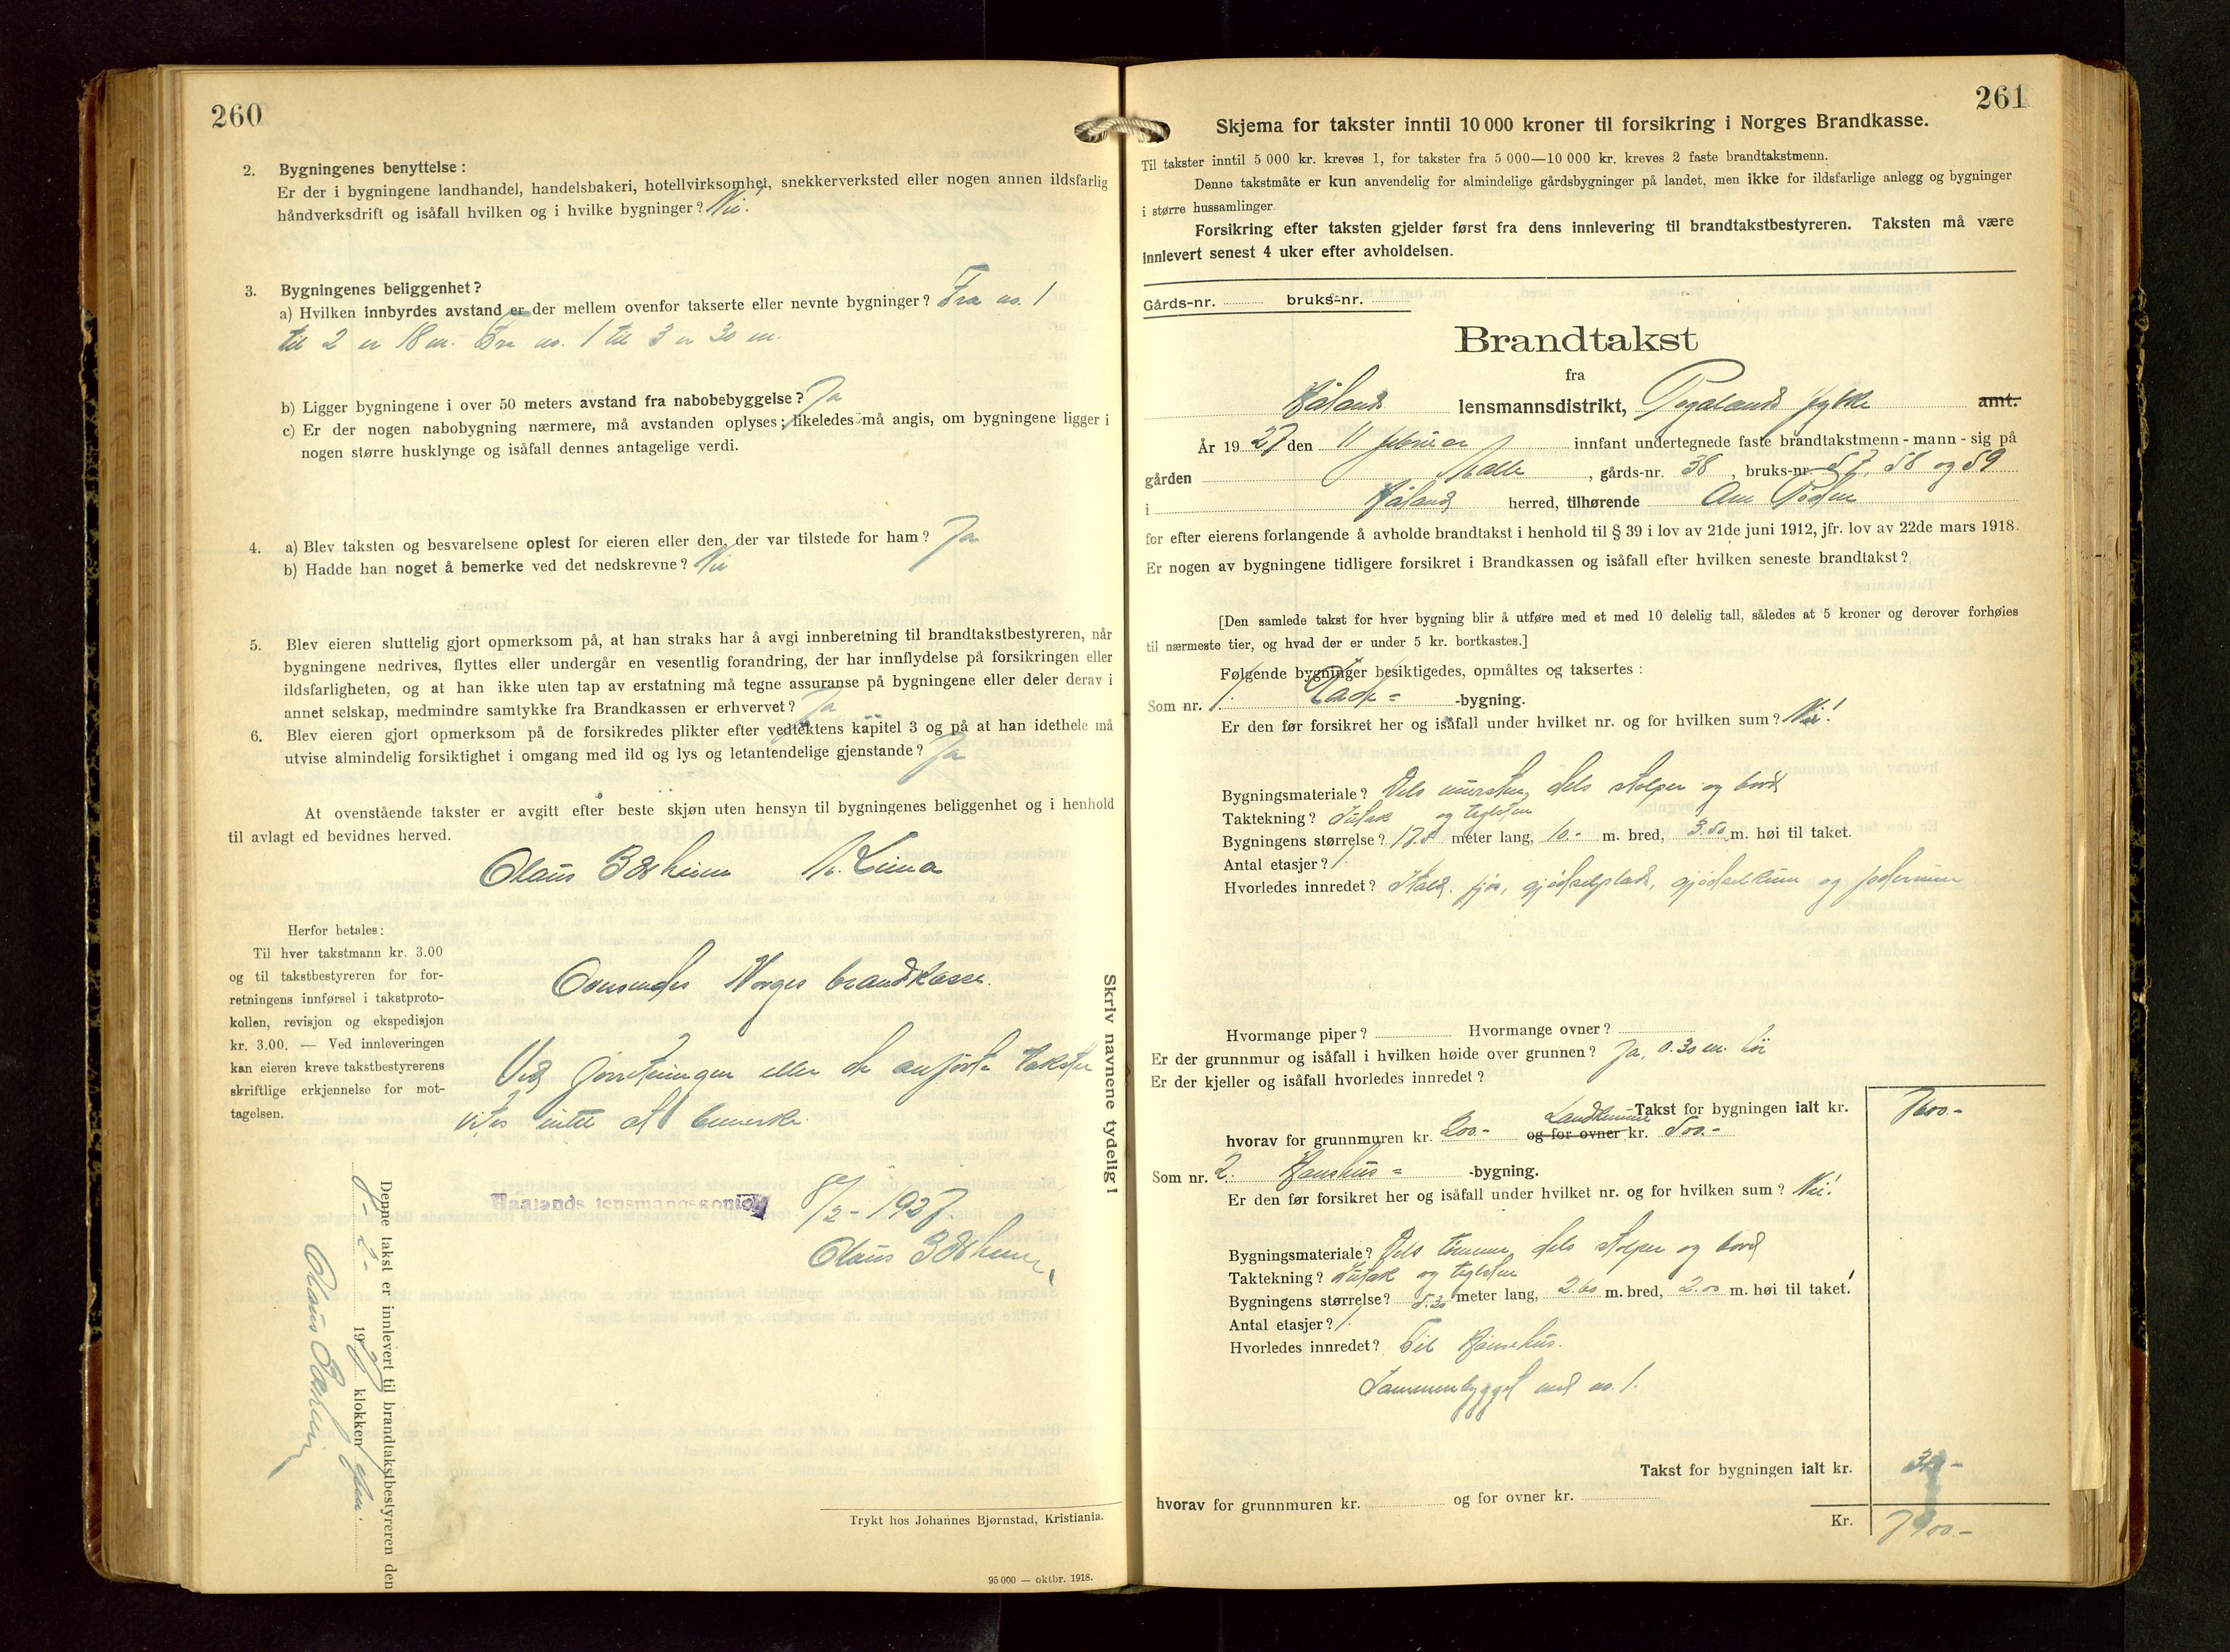 260
2. Bygningenes benyttelse:
Er der i bygningene landhandel, handelsbakeri, hotellvirksomhet, snekkerverksted eller nogen annen ildsfarlig
håndverksdrift og isåfall hvilken og i hvilke bygninger? Nei!
3. Bygningenes beliggenhet?
a) Hvilken innbyrdes avstand er der mellem ovenfor takserte eller nevnte bygninger? Fra no. 1
til 2 er 18 m. Fra no. 1 til 3 er 30 m.
b) Ligger bygningene i over 50 meters avstand fra nabobebyggelse? Ja
c) Er der nogen nabobygning nærmere, må avstanden oplyses; likeledes må angis, om bygningene ligger i
nogen større husklynge og isåfall dennes antagelige verdi.
4. a) Blev taksten og besvarelsene oplest for eieren eller den, der var tilstede for ham? Ja
b) Hadde han noget å bemerke ved det nedskrevne? Nei
5. Blev eieren sluttelig gjort opmerksom på, at han straks har å avgi innberetning til brandtakstbestyreren, når
bygningene nedrives, flyttes eller undergår en vesentlig forandring, der har innflydelse på forsikringen eller
ildsfarligheten, og at han ikke uten tap av erstatning må tegne assuranse på bygningene eller deler derav i
annet selskap, medmindre samtykke fra Brandkassen er erhvervet? Ja
6. Blev eieren gjort opmerksom på de forsikredes plikter efter vedtektens kapitel 3 og på at han idethele må
utvise almindelig forsiktighet i omgang med ild og lys og letantendelige gjenstande? Ja
At ovenstående takster er avgitt efter beste skjøn uten hensyn til bygningenes beliggenhet og i henhold
til avlagt ed bevidnes herved.
Olaus
Herfor betales:
Til hver takstmann kr. 3.00
og til takstbestyreren for for-
retningens innførsel i takstproto-
kollen, revisjon og ekspedisjon
kr. 3.00. — Ved innleveringen
kan eieren kreve takstbestyrerens
skriftlige erkjennelse for mot-
tagelsen.
Oversendes Norges brandkasse.
Ved forretningen eller de anførte takster
vites intet at bemerke.
Haalands lensmannskontor 8/2 - 1927.
Olaus
Skriv navnene tydelig!
Denne takst er innlevert til brandtakstbestyreren den
8 - 2 - 19 27 klokken
Olaus
Trykt hos Johannes Bjørnstad, Kristiania.
95 000 — oktbr. 1918.
261
Skjema for takster inntil 10 000 kroner til forsikring i Norges Brandkasse.
Til takster inntil 5 000 kr. kreves 1, for takster fra 5 000—10 000 kr. kreves 2 faste brandtakstmenn.
Denne takstmåte er kun anvendelig for almindelige gårdsbygninger på landet, men ikke for ildsfarlige anlegg og bygninger
i større hussamlinger.
Forsikring efter taksten gjelder først fra dens innlevering til brandtakstbestyreren. Taksten må være
innlevert senest 4 uker efter avholdelsen.
Gårds-nr. bruks-nr.
Brandtakst
fra
Håland lensmannsdistrikt, Rogalands fylke amt.
År 19 27 den 11 februar innfant undertegnede faste brandtakstmenn - mann - sig på
gården , gårds-nr. 38, bruks-nr. 57, 58 og 59
i Håland herred, tilhørende
for efter eierens forlangende å avholde brandtakst i henhold til § 39 i lov av 21de juni 1912, jfr. lov av 22de mars 1918.
Er nogen av bygningene tidligere forsikret i Brandkassen og isåfall efter hvilken seneste brandtakst?
[Den samlede takst for hver bygning blir å utføre med et med 10 delelig tall, således at 5 kroner og derover forhøies
til nærmeste tier, og hvad der er under 5 kr. bortkastes.]
Følgende bygninger besiktigedes, opmåltes og taksertes:
Som nr. 1. Lade= -bygning.
Er den før forsikret her og isåfall under hvilket nr. og for hvilken sum? Nei!
Bygningsmateriale? Dels mursten, dels stolper og bord
Taktekning? Sutak og teglsten
Bygningens størrelse? 17.5 meter lang, 10.- m. bred, 3.50 m. høi til taket.
Antal etasjer? 1.
Hvorledes innredet? Stald, fjøs, gjødselplads, gjødselkum og foderrum
Hvormange piper? Hvormange ovner?
Er der grunnmur og isåfall i hvilken høide over grunnen? Ja, 0.30 m. høi
Er der kjeller og isåfall hvorledes innredet?
Takst for bygningen ialt kr. 7600.-
hvorav for grunnmuren kr. 200.- og for ovner kr. 500.-
Som nr. 2. Hønshus= -bygning.
Er den før forsikret her og isåfall under hvilket nr. og for hvilken sum? Nei!
Bygningsmateriale? Dels tømmer, dels stolper og bord
Taktekning? Sutak og teglsten
Bygningens størrelse? 5.30 meter lang, 2.60 m. bred, 2.00 m. høi til taket.
Antal etasjer? 1.
Hvorledes innredet? Til Hønsehus.
Sammenbygget med no. 1.
Takst for bygningen ialt kr. 300.-
hvorav for grunnmuren kr. og for ovner kr.
Kr. 7900.-